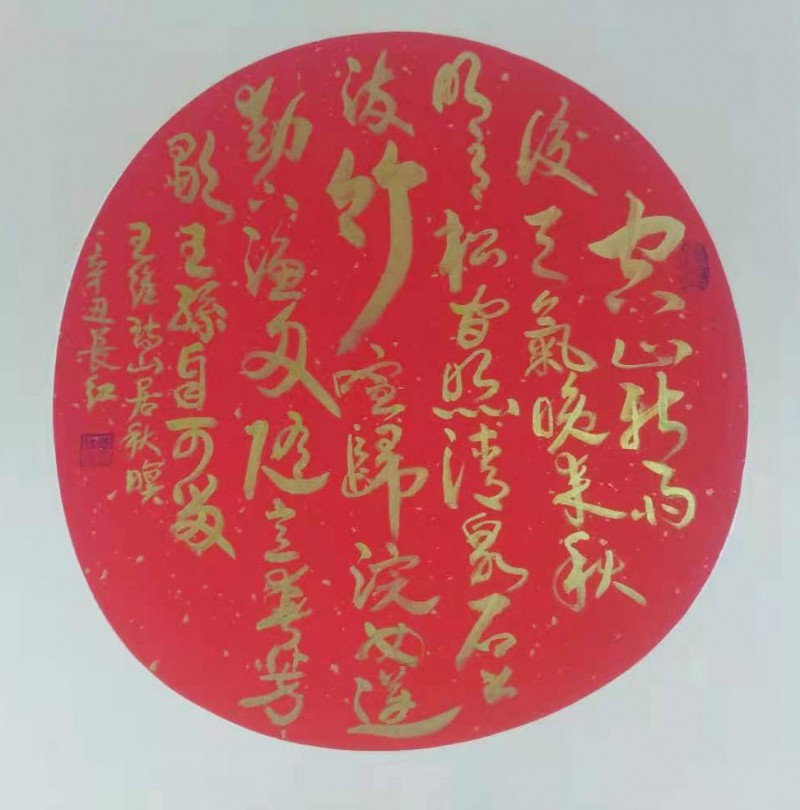 空山新雨
後天氣晚来秋
明月松間照清泉石上
流竹喧歸浣女蓮
動下漁舟隨意春芳
歇王孫自可留
王維詩山居秋暝
辛丑長红